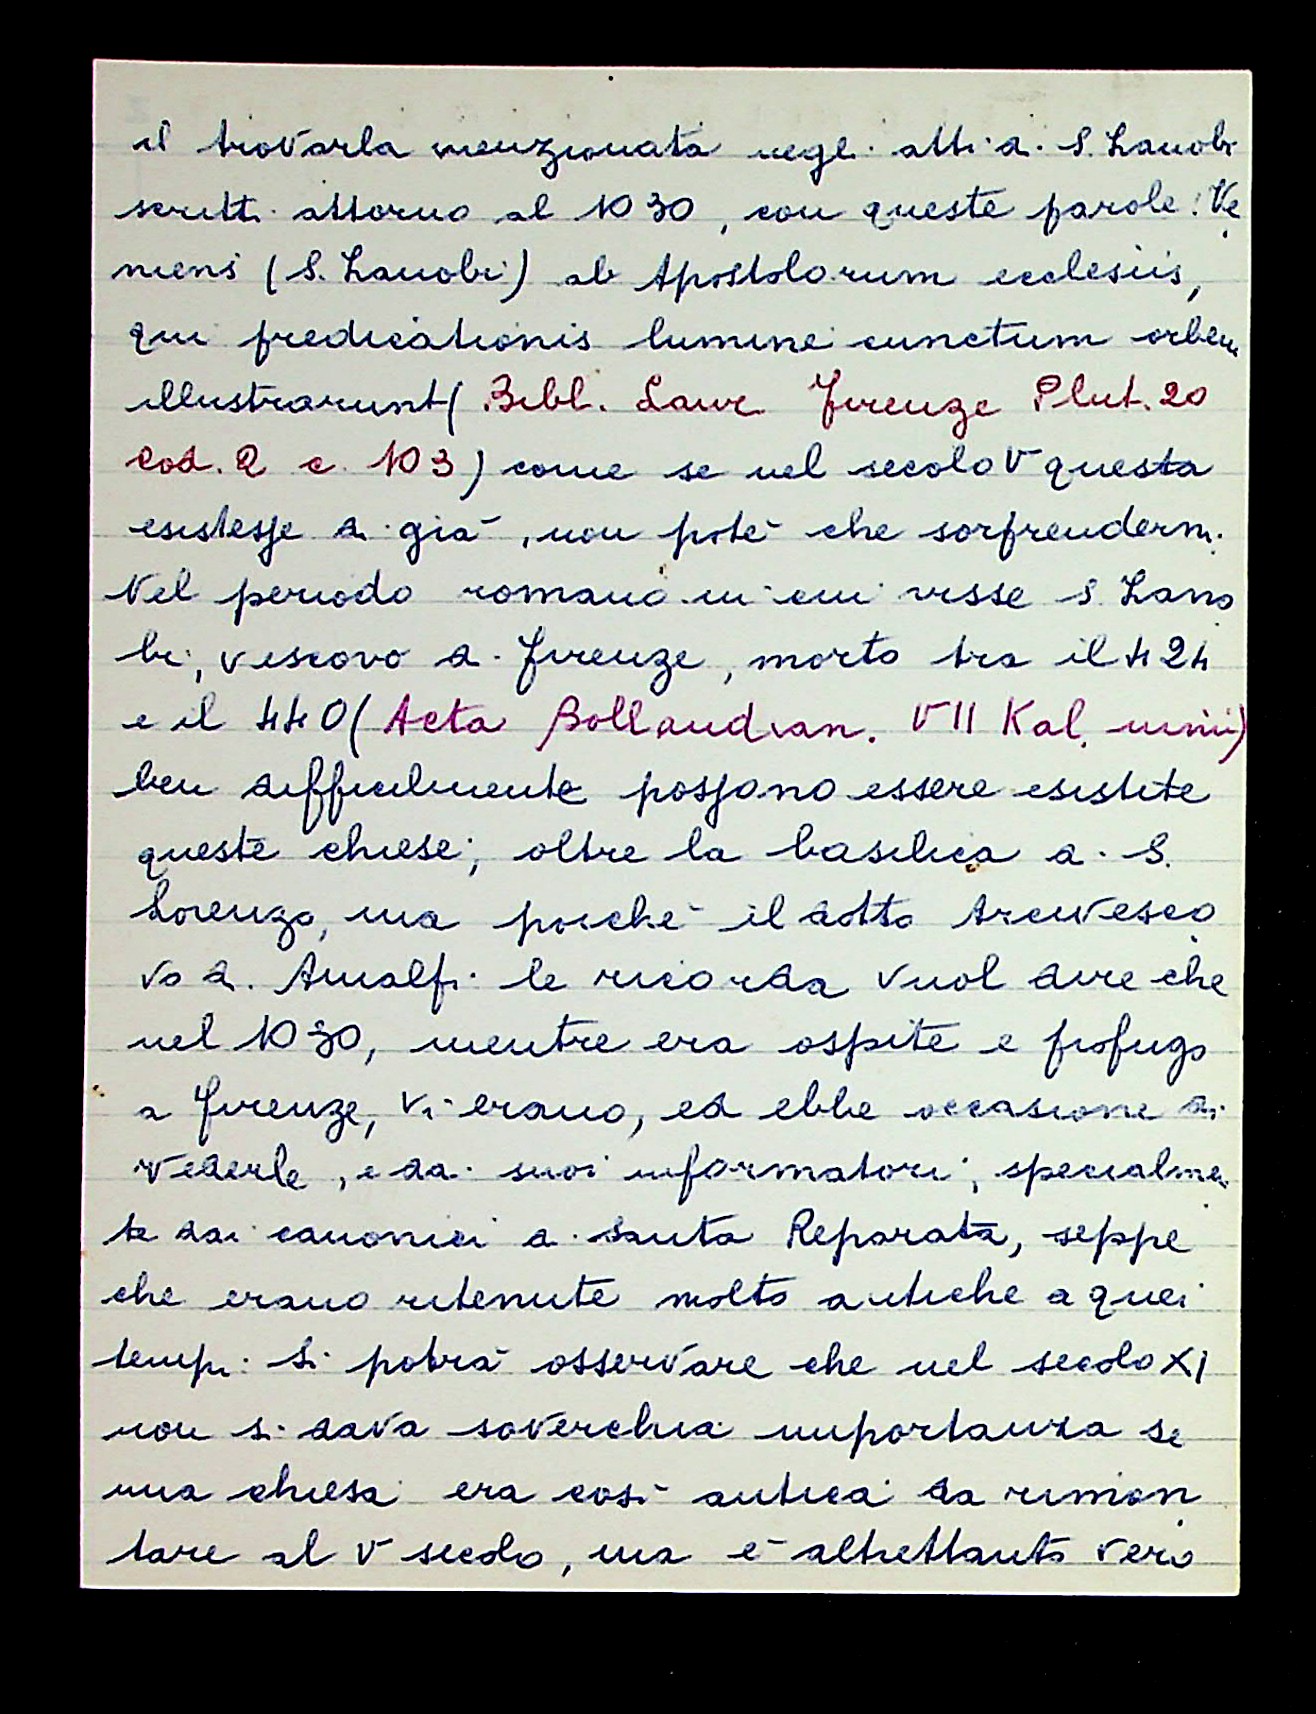 il trovarla menzionata negli atti di S. Zanobi
scritti attorno al 1030, con queste parole: Ve
niens (S. Zanobi) ab Apostolorum ecclesiis,
qui predicationis lumine cunctum orbem
illustrarunt (Bibl. Laur. Firenze Plut. 20
Cod. 2 c. 103) come se nel secolo V questa
esistesse di già, non poté che sorprendermi.
Nel periodo romano in cui visse S. Zano
bi, vescovo di Firenze, morto tra il 424
e il 440 (Acta Bollandian. VII Kal. iunii)
ben difficilmente possono essere esistite
queste chiese, oltre la basilica di S.
Lorenzo, ma poiché il dotto Arcivesco
vo di Amalfi le ricorda vuol dire che
nel 1030, mentre era ospite e profugo
a Firenze, vi erano, ed ebbe occasione di
vederle, e dai suoi informatori, specialmen
te dai canonici di Santa Reparata, seppe
che erano ritenute molto antiche a quei
tempi. Si potrà osservare che nel secolo XI
non si dava soverchia importanza se
una chiesa era così antica da rimon
tare al V secolo, ma è altrettanto vero